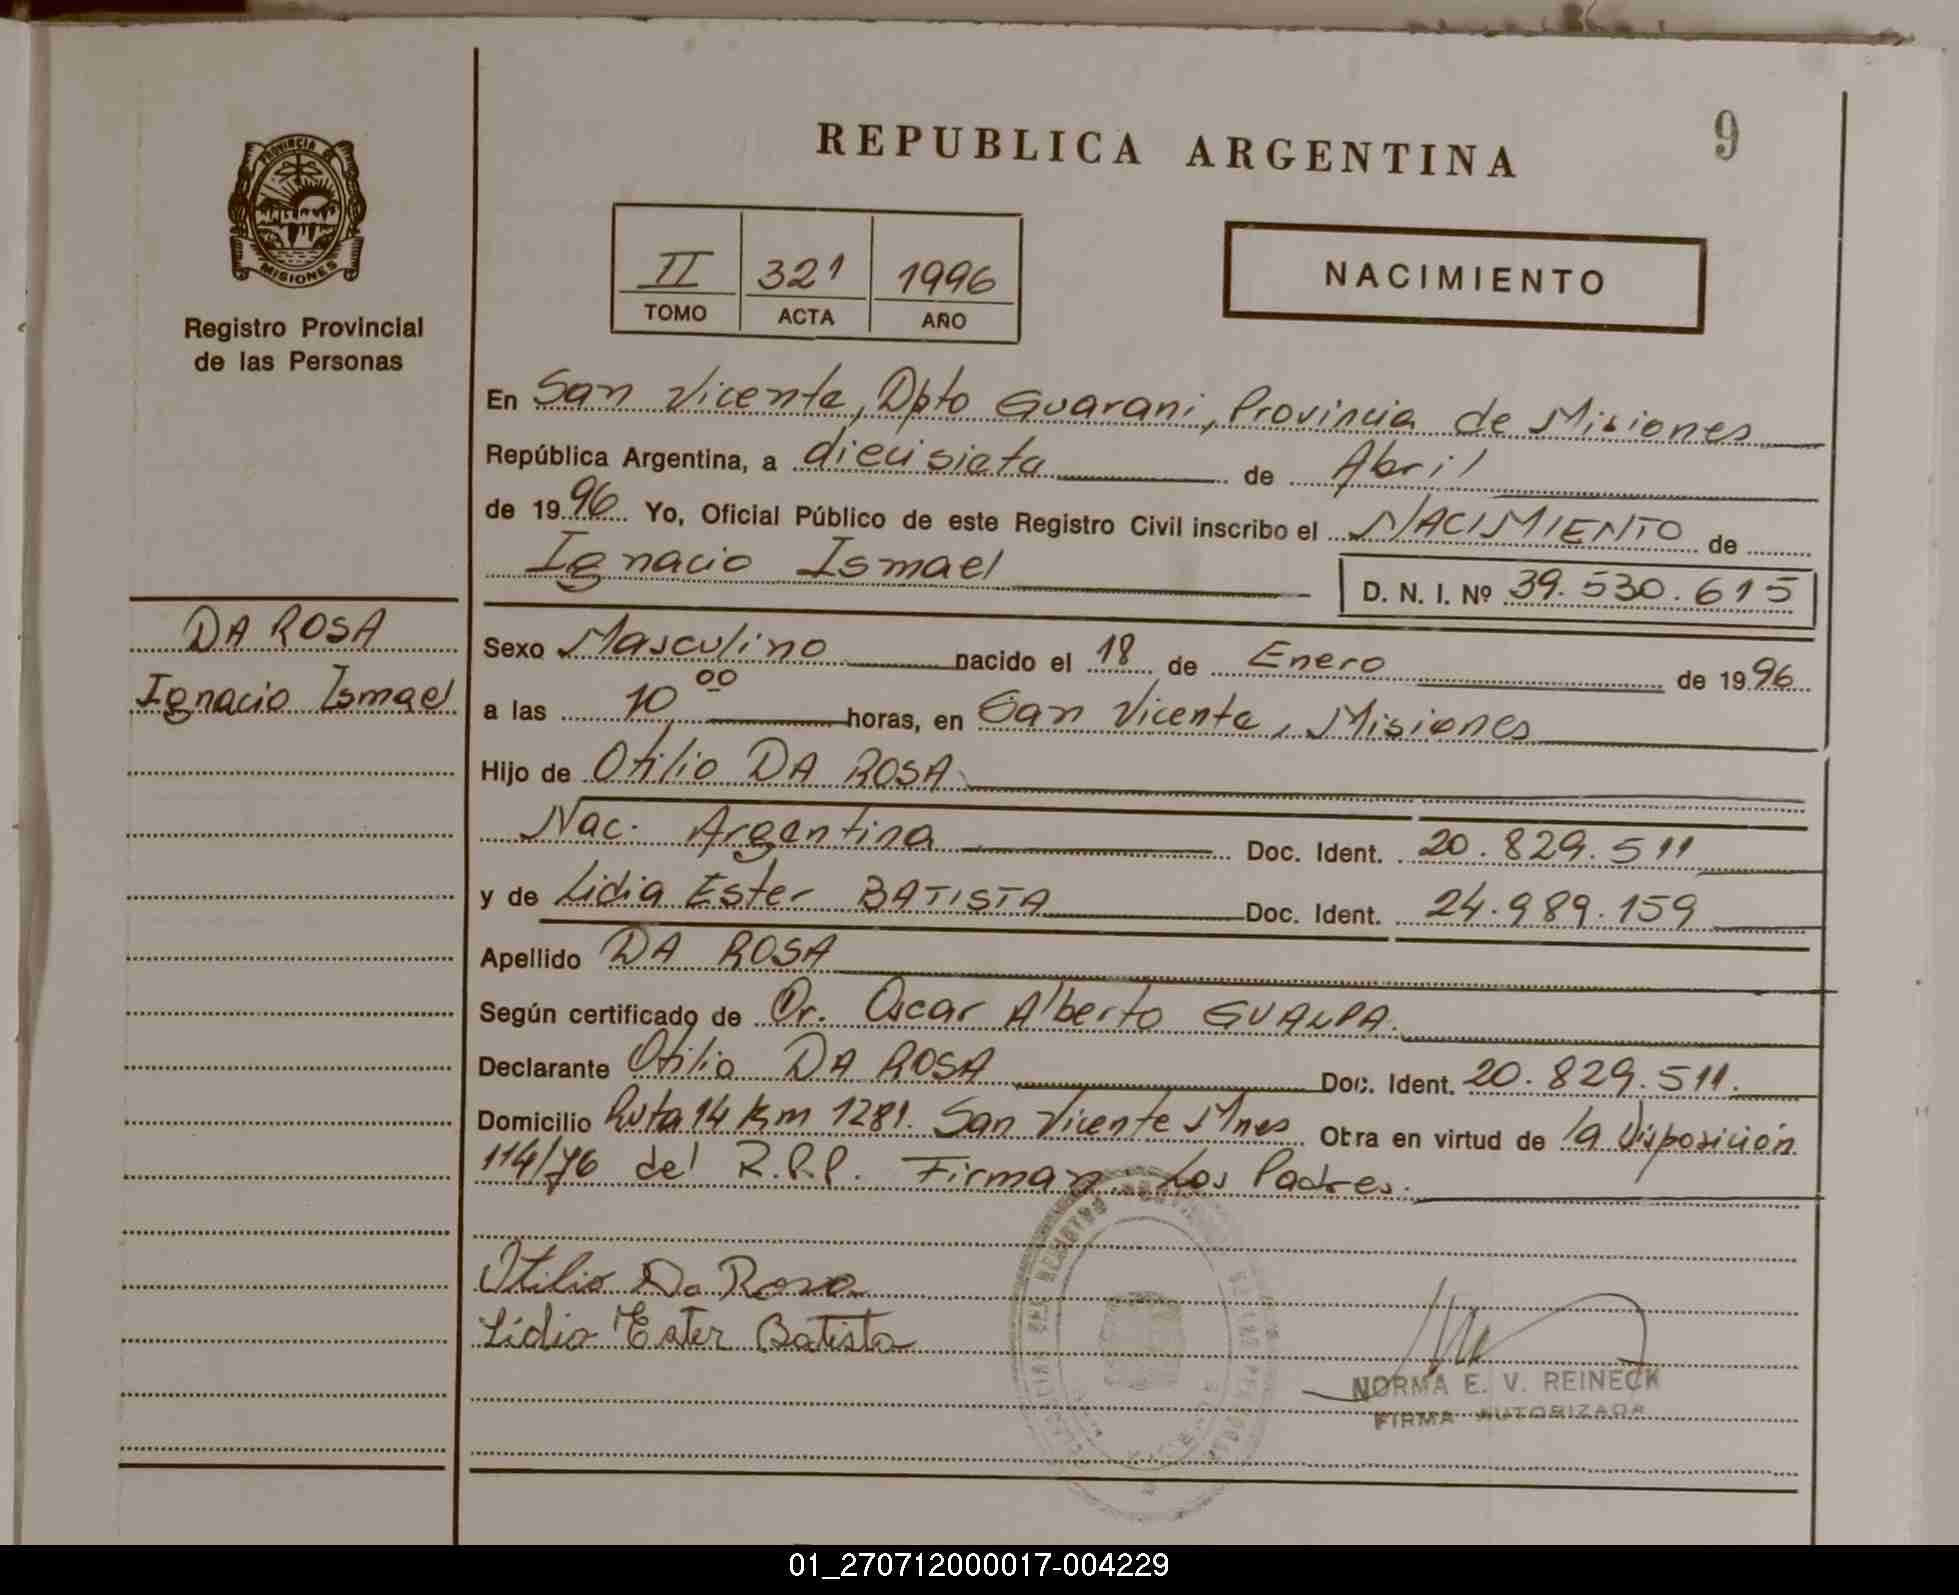 REPUBLICA ARGENTINA
9
PROVINCIA DE
MISIONES
Registro Provincial
de las Personas
II 321 1996
TOMO ACTA AÑO
NACIMIENTO
En San Vicente, Dpto Guarani, Provincia de Misiones
República Argentina, a diecisiete de Abril
de 1996 Yo, Oficial Público de este Registro Civil inscribo el NACIMIENTO de
Ignacio Ismael D. N. I. Nº 39.530.615
DA ROSA
Ignacio Ismael
Sexo Masculino nacido el 18 de Enero de 1996
a las 10 00 horas, en San Vicente, Misiones
Hijo de Otilio DA ROSA
Nac. Argentina Doc. Ident. 20.829.511
y de Lidia Ester BATISTA Doc. Ident. 24.989.159
Apellido DA ROSA
Según certificado de Dr. Oscar Alberto GUALPA.
Declarante Otilio DA ROSA Doc. Ident. 20.829.511.
Domicilio Ruta 14 Km 1281. San Vicente Mnes Obra en virtud de la Disposición
114/76 del R.P.P. Firman Los Padres.
Otilio Da Rosa
Lidia Ester Batista
NORMA E. V. REINECK
FIRMA AUTORIZADA
01_270712000017-004229